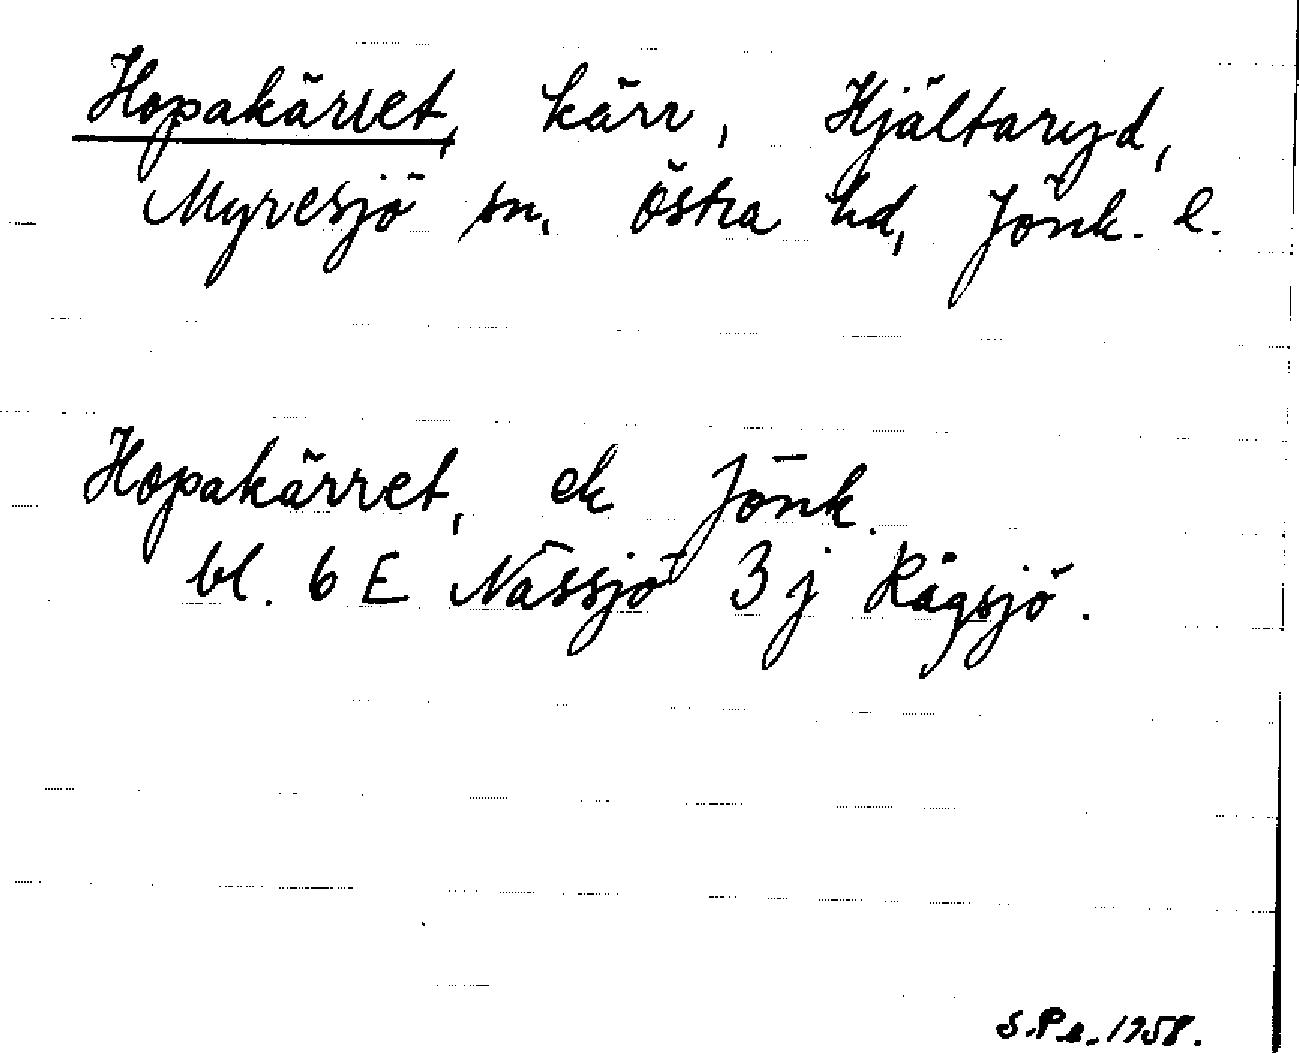 Hopakärret, kärr, Hjältaryd,
Myresjö sn, Östra hd, Jönk. l.
Hopakärret, ek Jönk.
bl. 6 E Nässjö 3 j Rågsjö.
S.Pe. 1958.